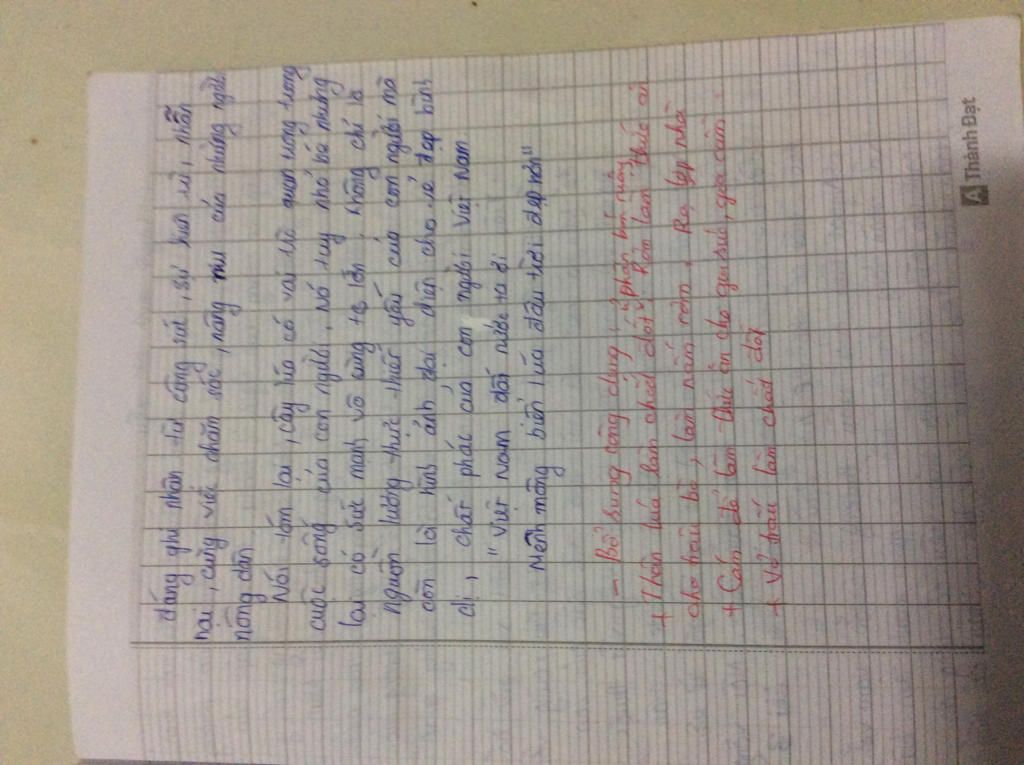 đáng ghi nhận từ công sức, sự kiên trì, nhẫn
nại, cùng việc chăm sóc, nâng niu của những người
nông dân
Nói tóm lại, cây lúa có vai trò quan trọng trong
cuộc sống của con người, nó tuy nhỏ bé nhưng
lại có sức mạnh vô cùng to lớn, không chỉ là
nguồn lương thực thiết yếu của con người mà
còn là hình ảnh đại diện cho vẻ đẹp bình
dị, chất phác của con người Việt Nam
"Việt Nam đất nước ta ơi
Mênh mông biển lúa đâu trời đẹp hơn"
- Bổ sung công dụng, phân bón ruộng
+ Thân lúa làm chất đốt, Rơm làm thức ăn
cho trâu bò, làm nấm rơm, Rạ lợp nhà
+ Cám để làm thức ăn cho gia súc, gia cầm.
+ Vỏ trấu làm chất đốt
Thành Đạt